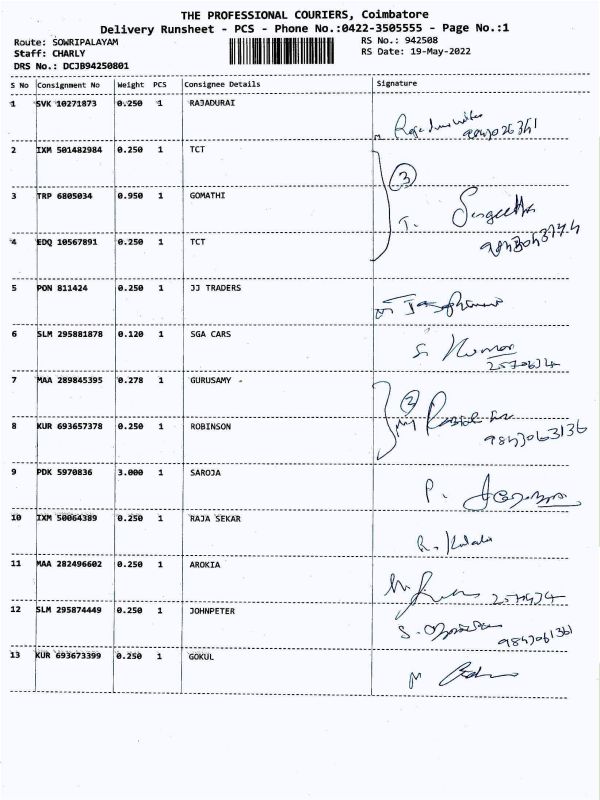 THE PROFESSIONAL COURIERS, Coimbatore
Delivery Runsheet - PCS - Phone No.:0422-3505555 - Page No.:1
Route: SOWRIPALAYAM
Staff: CHARLY
DRS No.: DCJB94250801
RS No.: 942508
RS Date: 19-May-2022
S No Consignment No Weight PCS Consignee Details Signature
1 SVK 10271873 0.250 1 RAJADURAI
2 IXM 501482984 0.250 1 TCT
3
3 TRP 6805034 0.950 1 GOMATHI
T. Sangeetha
4 EDQ 10567891 0.250 1 TCT
5 PON 811424 0.250 1 JJ TRADERS
6 SLM 295881878 0.120 1 SGA CARS
S. Kumar
7 MAA 289845395 0.278 1 GURUSAMY -
2
8 KUR 693657378 0.250 1 ROBINSON
9843063136
9 PDK 5970836 3.000 1 SAROJA
P.
10 IXM 50064389 0.250 1 RAJA SEKAR
R. Kalala
11 MAA 282496602 0.250 1 AROKIA
12 SLM 295874449 0.250 1 JOHNPETER
S.
9843061361
13 KUR 693673399 0.250 1 GOKUL